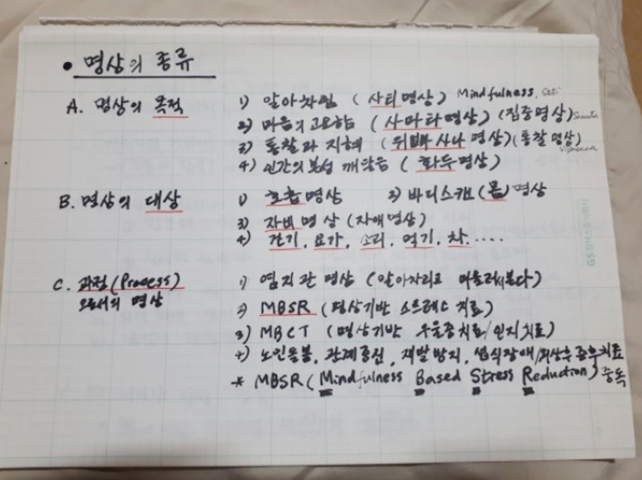 • 명상의 종류
A. 명상의 목적
1) 알아차림 (사티명상) Mindfulness, Sati
2) 마음의 고요함 (사마타명상) (집중명상)
3) 통찰과 지혜 (위빠사나 명상) (통찰명상) Vipassana
4) 인간의 본성 깨달음 (화두명상)
B. 명상의 대상
1) 호흡명상 2) 바디스캔 (몸) 명상
3) 자비명상 (자애명상)
4) 걷기, 요가, 소리, 먹기, 차.....
C. 과정 (Process)
으로서의 명상
1) 염지관 명상 (알아차리고 머물러본다)
2) MBSR (명상기반 스트레스 치료)
3) MBCT (명상기반 우울증치료/인지치료)
4) 노인돌봄, 관계증진, 재발방지, 섭식장애/외상후 증후치료
* MBSR (Mindfulness Based Stress Reduction) 중독